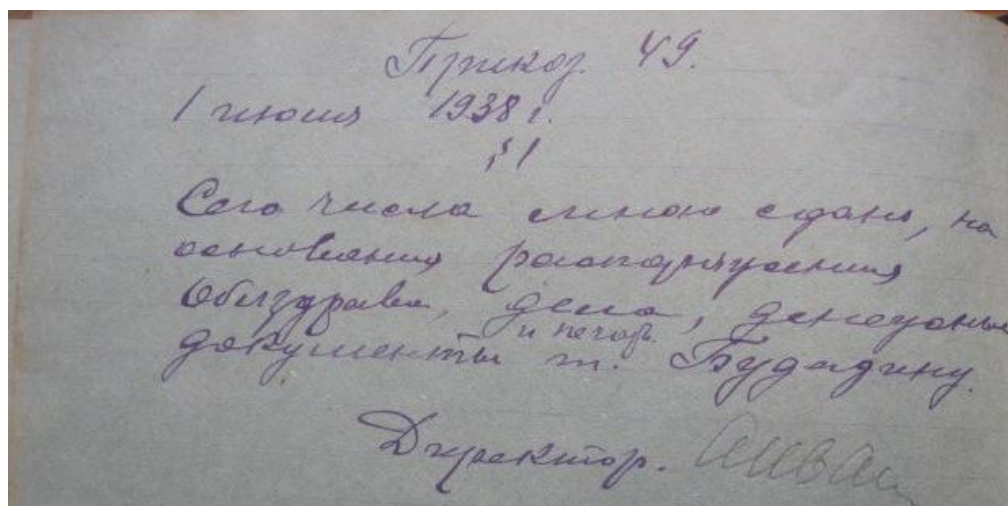 Приказ. 49.
1 июня 1938 г.
§ 1
Сего числа мною сданы, на
основании распоряжения
Облздрава, дела, денежные
и печать
документы т. Будадину.
Директор.